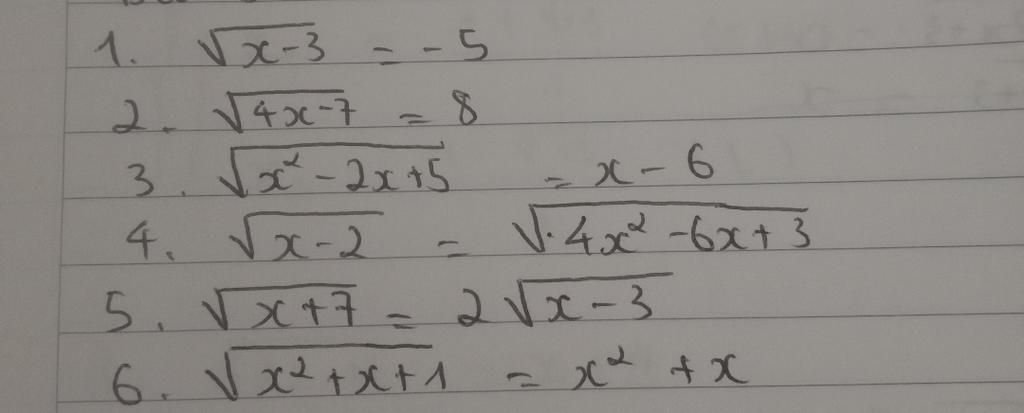 1. √(x-3) = -5
2. √(4x-7) = 8
3. √(x²-2x+5) = x-6
4. √(x-2) = √(4x²-6x+3)
5. √(x+7) = 2√(x-3)
6. √(x²+x+1) = x²+x